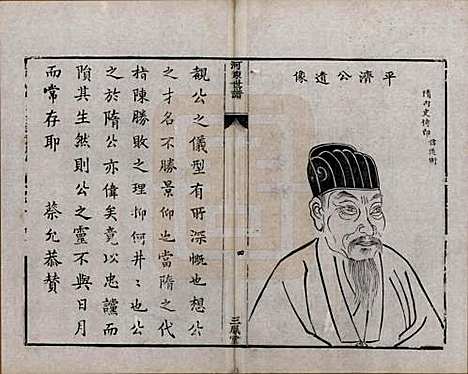 平濟公遺像
隋內史侍郎諱道衡
河東世譜
四
三鳳堂
覩公之儀型有所深慨也想公
之才名不勝景仰也當隋之代
指陳勝敗之理抑何井〻也公
之於隋公亦偉矣竟以忠讜而
隕其生然則公之靈不與日月
而常存耶 蔡允恭贊